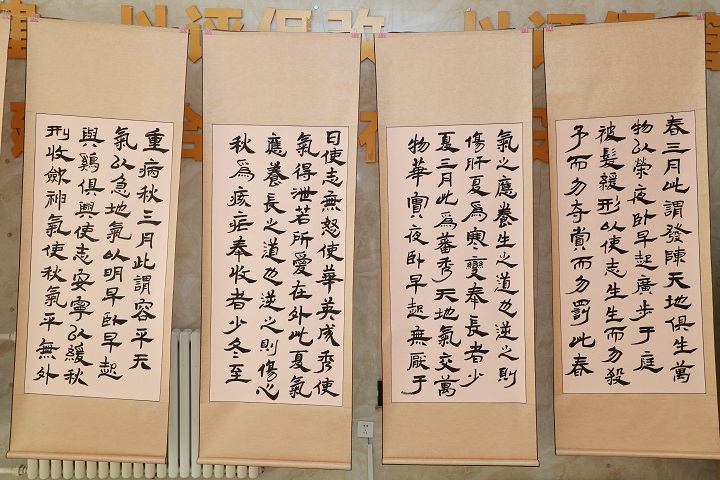 春三月此謂發陳天地俱生萬
物以榮夜卧早起廣步于庭
被髮緩形以使志生生而勿殺
予而勿奪賞而勿罰此春
氣之應養生之道也逆之則
傷肝夏爲寒變奉長者少
夏三月此爲蕃秀天地氣交萬
物華實夜卧早起無厭于
日使志無怒使華英成秀使
氣得泄若所愛在外此夏氣
應養長之道也逆之則傷心
秋爲痎疟奉收者少冬至
重病秋三月此謂容平天
氣以急地氣以明早卧早起
與鷄俱興使志安寧以緩秋
刑收斂神氣使秋氣平無外
以评促改 以评促